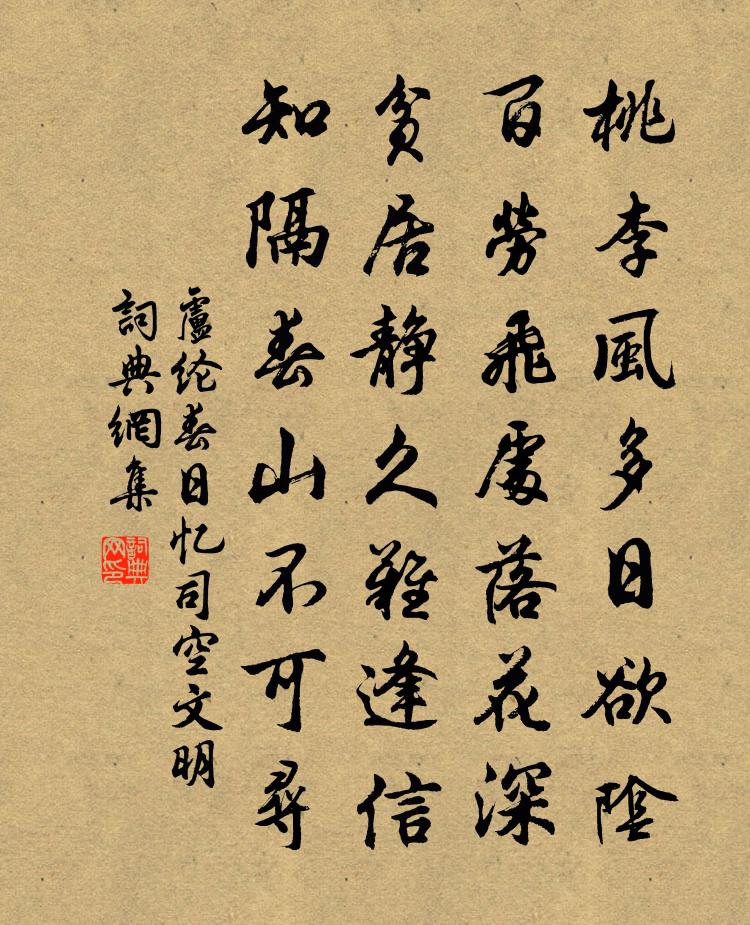 桃李風多日欲陰
百勞飛處落花深
貧居静久難逢信
知隔春山不可尋
盧纶春日忆司空文明
詞典網集
詞典网印